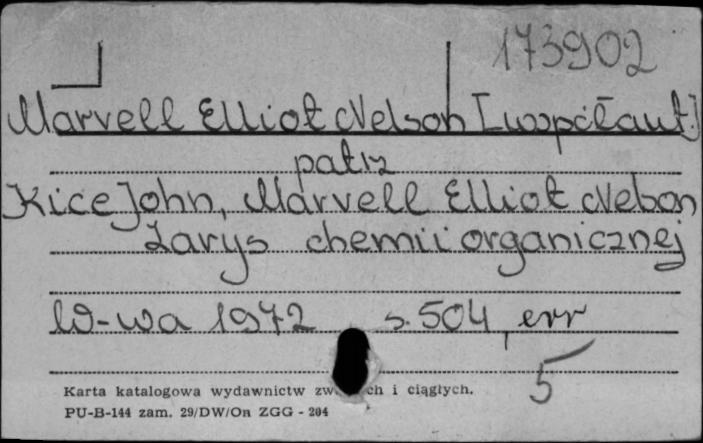 173902
Marvell Elliot Nelson [współaut.]
patrz
Kice John, Marvell Elliot Nelson
Zarys chemii organicznej
W-wa 1972 s. 504, err
5
Karta katalogowa wydawnictw ch i ciągłych.
PU-B-144 zam. 29/DW/On ZGG - 204